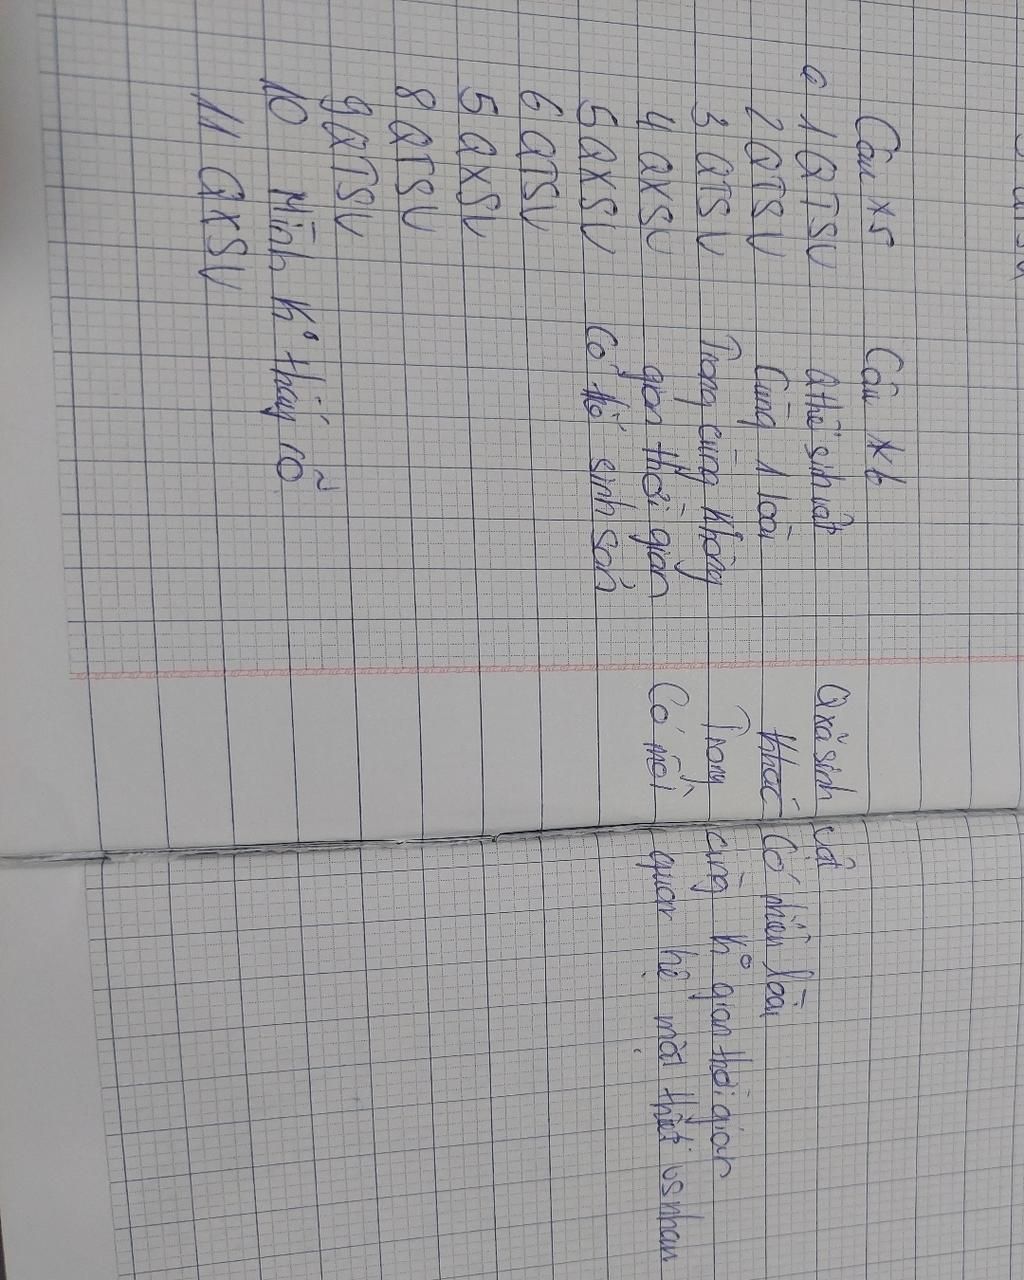 Câu x5
1 QTSV
2 QTSV
3 QTSV
4 QXSV
5 QXSV
6 QTSV
5 QXSV
8 QTSV
9 QTSV
10 Mình k° thấy rõ
11 QXSV
Câu x6
Qthể sinh vật
Cùng 1 loài
Trong cùng không
gian thời gian
Có thể sinh sản
Q xã sinh vật
Khác Có nhiều loài
Trong cùng k° gian thời gian
Có mối quan hệ mật thiết vs nhau